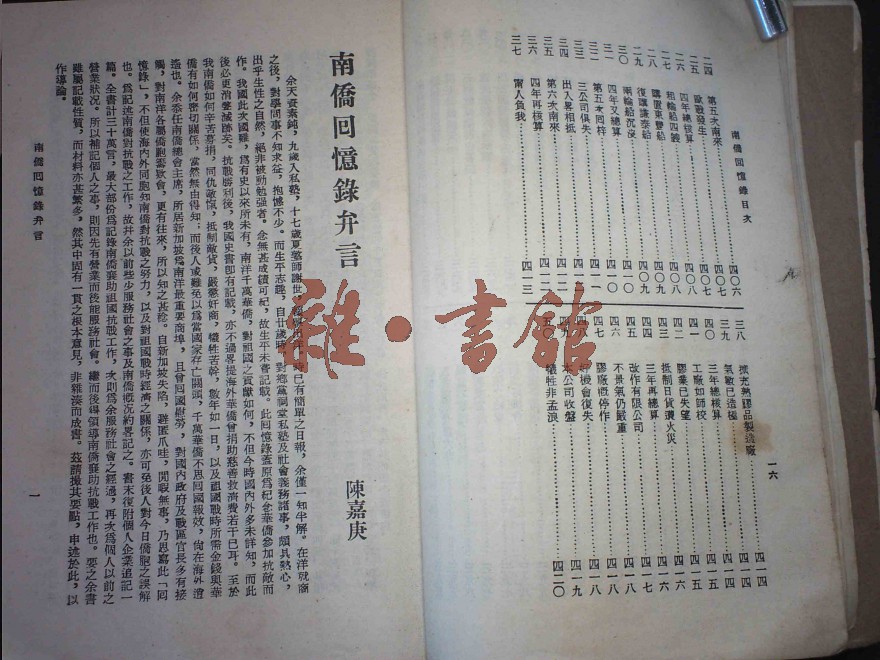 一六
南僑回憶錄目次
二四 第五次南來……四〇六
二五 歐戰發生……四〇七
二六 四年總核算……四〇七
二七 租輪船四艘……四〇八
二八 購置東豐船……四〇八
二九 復購謙泰船……四〇九
三〇 兩輪船沉沒……四〇九
三一 四年又總算……四一〇
第五次回梓
三公司俱失
三四 出入略相抵
第六次南來
三六 四年再核算……四一二
三七 甯人負我……四一三
三八 擴充熱膠品製造廠……四一四
三九 氣數已造極……四一四
四〇 三年總核算
工廠如師校……四一五
膠業已失望
抵制日貨遭火災……四一六
改作有限公司
三年再總算
不景氣仍嚴重……四一八
四七 膠廠概停作……四一八
好機會復失
本公司收盤……四一九
犧牲非孟浪……四二〇
南僑回憶錄弁言
陳嘉庚
余天資素鈍，九歲入私塾，十七歲夏塾師謝世，時已有簡單之日報，余僅一知半解。在洋就商
之後，對學問事不知求益，抱憾不少。而生平志趣，自廿歲時，對鄉黨祠堂私塾及社會義務諸事，頗具熱心，
出乎生性之自然，絕非被動勉强者。念無甚成績可紀，故生平未嘗記載。此回憶錄蓋原為紀念華僑參加抗敵而
作。我國此次國難，為有史以來所未有，南洋千萬華僑，對祖國之貢獻如何，不但今時國內外多未詳知，而此
後必更消聲滅跡矣。抗戰勝利後，我國史書即有記載，亦不過畧提海外華僑曾捐助慈善救濟費若干已耳。至於
我南僑如何辛苦募捐，同仇敵愾，抵制敵貨，嚴懲奸商，犧牲苦幹，數年如一日，以及祖國戰時所需金錢與華
僑有如何密切關係，當然無由得知；而後人或難免以為當國家存亡關頭，千萬華僑不思回國報效，尚在海外逍
遙也。余忝任南僑總會主席，所居新加坡為南洋最重要商埠，且曾回國慰勞，對國內政府及戰區官長多有接
觸，對南洋各屬僑胞籌款會，更有往來，所以知之甚稔。自新加坡失陷，避匿爪哇，閒暇無事，乃思寫此「回
憶錄」，不但使海內外同胞知南僑對抗戰之努力，以及對祖國戰時經濟之關係，亦可免後人對今日僑胞之誤解
也。為記述南僑對抗戰之工作，故并余以前些少服務社會之事及南僑概况約畧記之。書末復附個人企業追記一
篇。全書計三十萬言，最大部份為記錄南僑襄助祖國抗戰工作，次則為余服務社會之經過，再次為個人以前之
營業狀况。所以補記個人之事，則因先有營業而後能服務社會。繼而後得領導南僑襄助抗戰工作也。要之余書
雖屬記載性質，而材料亦甚繁多，然其中固有一貫之根本意見，非雜湊而成書。茲請撮其要點，申述於此，以
作導論。
南僑回憶錄弁言
一
雜·書館